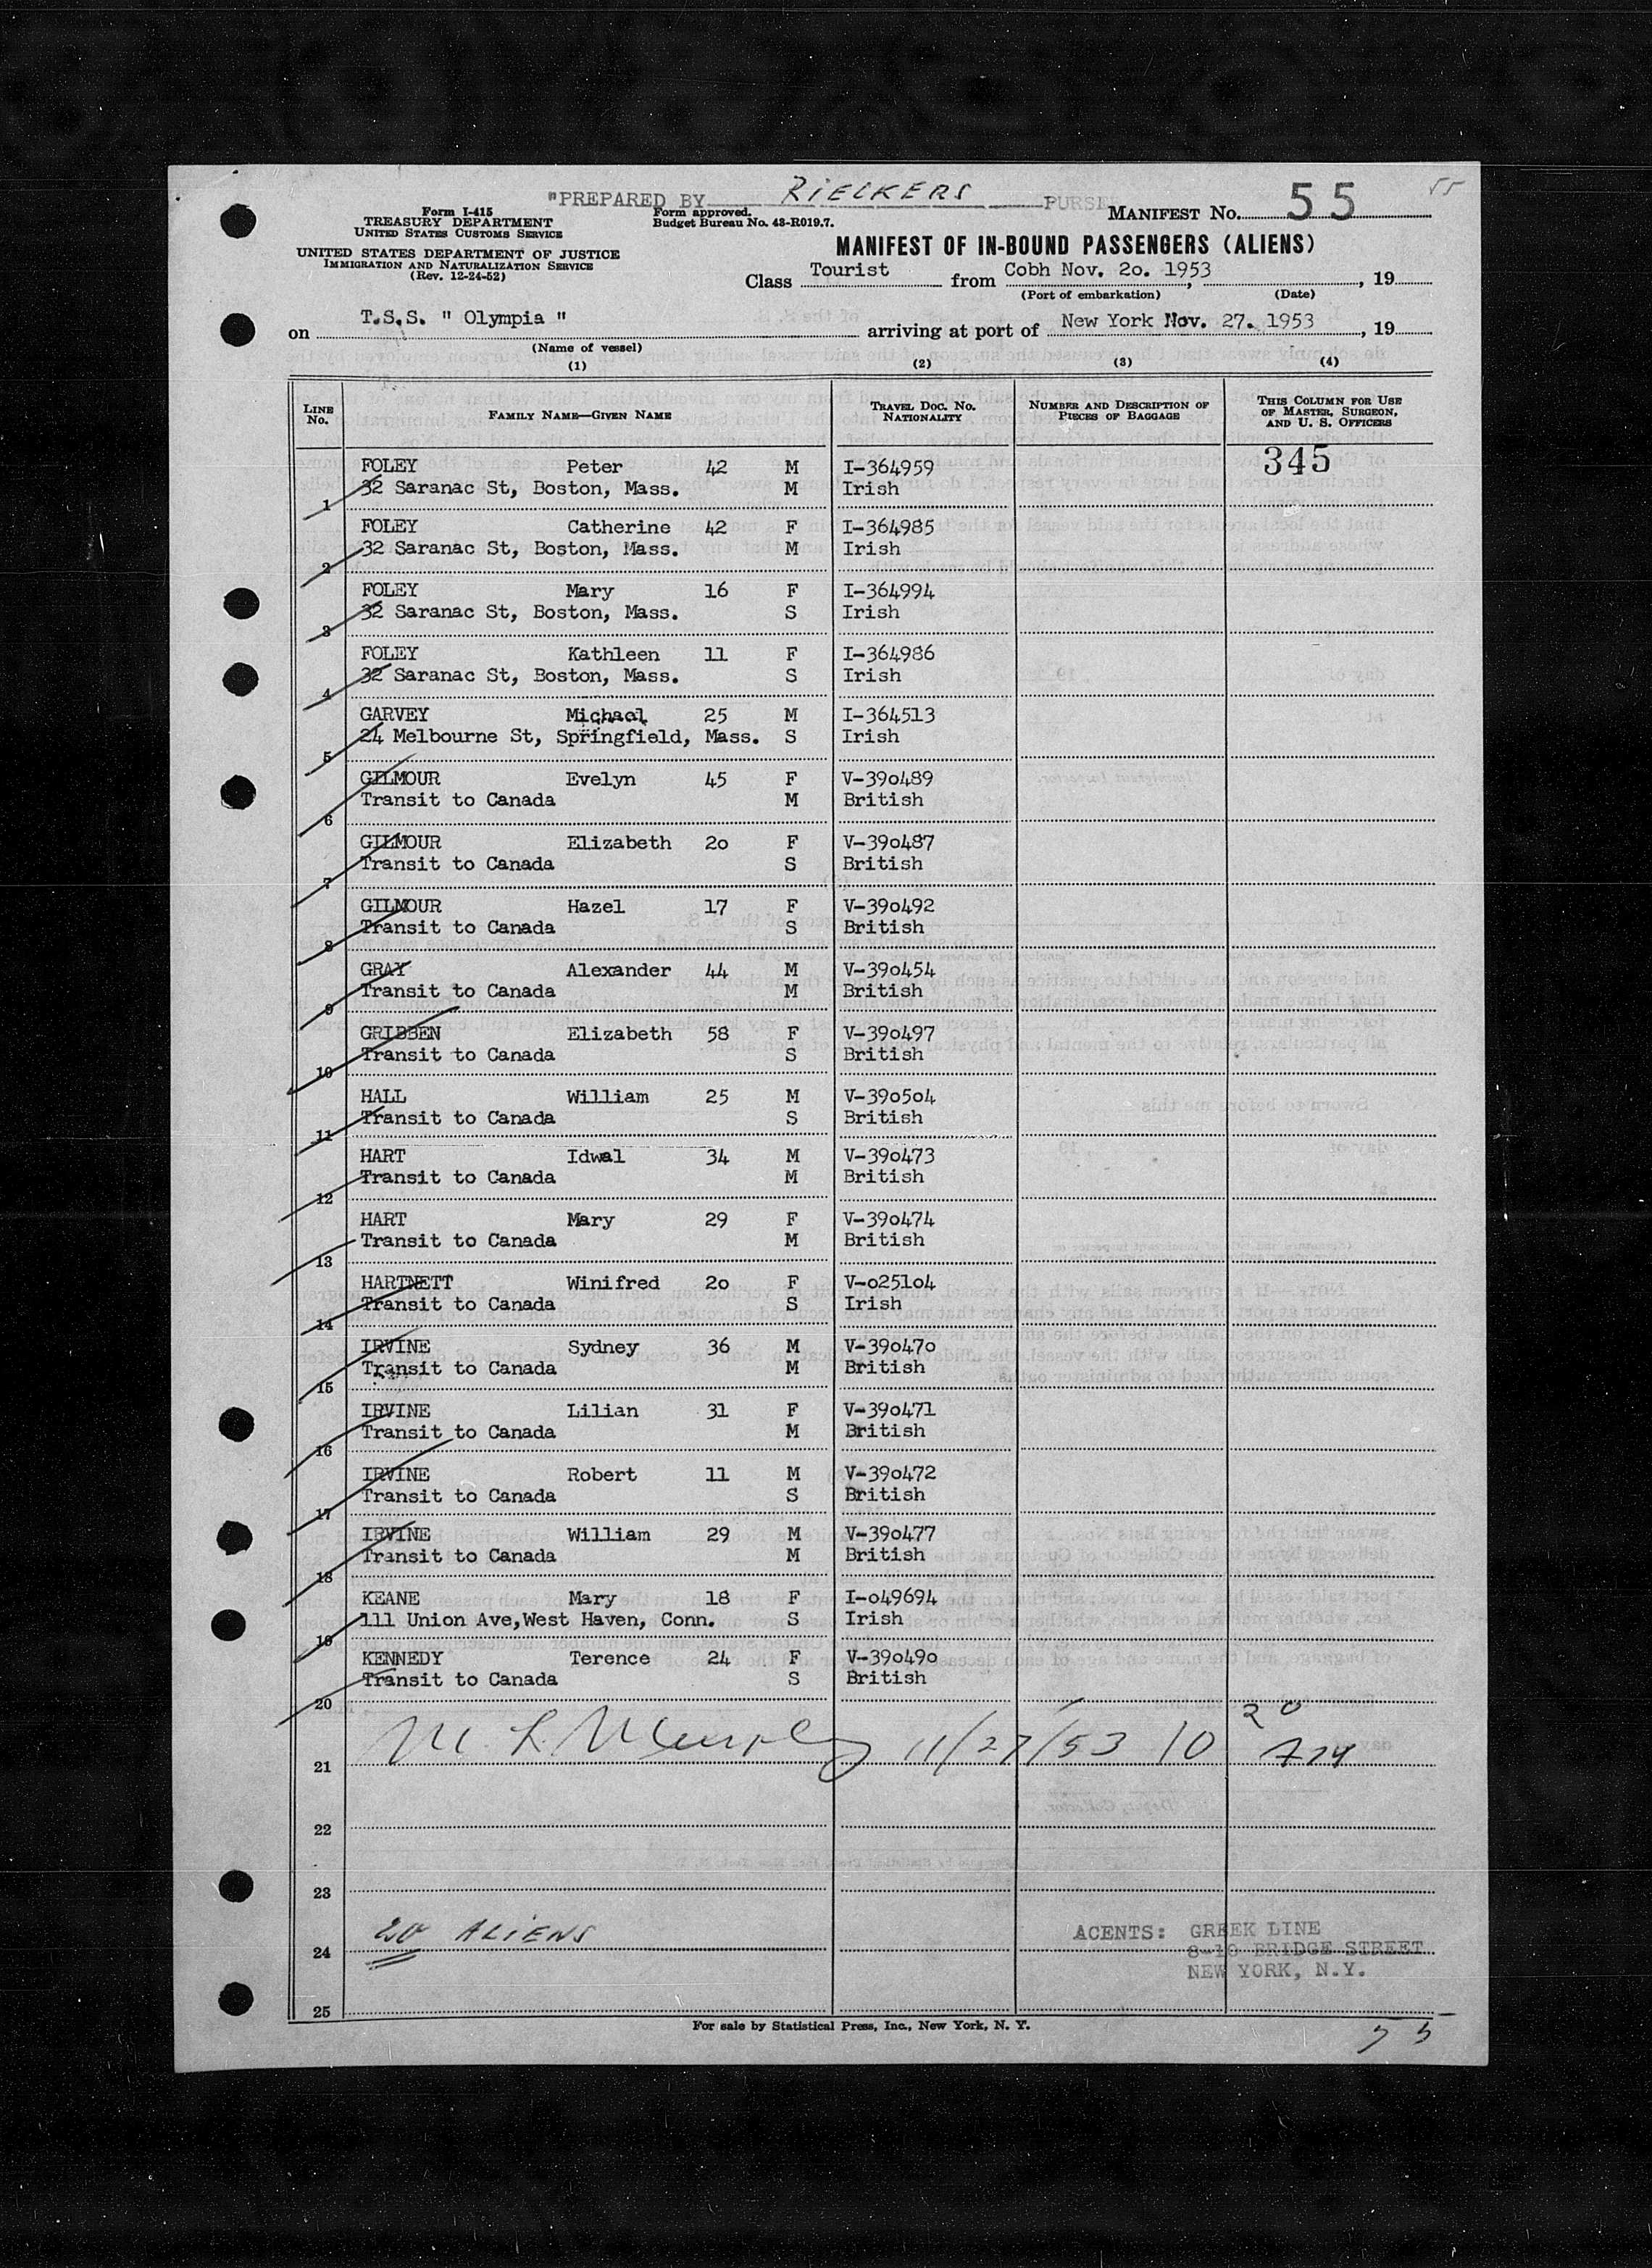 "PREPARED BY RIECKERS PURSE
Form I-415
TREASURY DEPARTMENT
UNITED STATES CUSTOMS SERVICE
Form approved.
Budget Bureau No. 43-R019.7.
MANIFEST No. 55
55
UNITED STATES DEPARTMENT OF JUSTICE
IMMIGRATION AND NATURALIZATION SERVICE
(Rev. 12-24-52)
MANIFEST OF IN-BOUND PASSENGERS (ALIENS)
Class Tourist from Cobh Nov. 2o. 1953, 19
(Port of embarkation) (Date)
on T.S.S. " Olympia " arriving at port of New York Nov. 27. 1953, 19
(Name of vessel)
(1) (2) (3) (4)
LINE No. FAMILY NAME—GIVEN NAME TRAVEL DOC. NO. NATIONALITY NUMBER AND DESCRIPTION OF PIECES OF BAGGAGE THIS COLUMN FOR USE OF MASTER, SURGEON, AND U. S. OFFICERS
345
FOLEY Peter 42 M I-364959
1 32 Saranac St, Boston, Mass. M Irish
FOLEY Catherine 42 F I-364985
2 32 Saranac St, Boston, Mass. M Irish
FOLEY Mary 16 F I-364994
3 32 Saranac St, Boston, Mass. S Irish
FOLEY Kathleen 11 F I-364986
4 32 Saranac St, Boston, Mass. S Irish
GARVEY Michael 25 M I-364513
5 24 Melbourne St, Springfield, Mass. S Irish
GILMOUR Evelyn 45 F V-39o489
6 Transit to Canada M British
GILMOUR Elizabeth 2o F V-39o487
7 Transit to Canada S British
GILMOUR Hazel 17 F V-39o492
8 Transit to Canada S British
GRAY Alexander 44 M V-39o454
9 Transit to Canada M British
GRIBBEN Elizabeth 58 F V-39o497
10 Transit to Canada S British
HALL William 25 M V-39o5o4
11 Transit to Canada S British
HART Idwal 34 M V-39o473
12 Transit to Canada M British
HART Mary 29 F V-39o474
13 Transit to Canada M British
HARTNETT Winifred 2o F V-o251o4
14 Transit to Canada S Irish
IRVINE Sydney 36 M V-39o47o
15 Transit to Canada M British
IRVINE Lilian 31 F V-39o471
16 Transit to Canada M British
IRVINE Robert 11 M V-39o472
17 Transit to Canada S British
IRVINE William 29 M V-39o477
18 Transit to Canada M British
KEANE Mary 18 F I-o49694
19 111 Union Ave,West Haven, Conn. S Irish
KENNEDY Terence 24 F V-39o49o
20 Transit to Canada S British
21 M. L. Murphy 11/27/53 10 20
22
23
24 20 ALIENS
ACENTS: GREEK LINE
8-10 BRIDGE STREET
NEW YORK, N.Y.
25
For sale by Statistical Press, Inc., New York, N. Y.